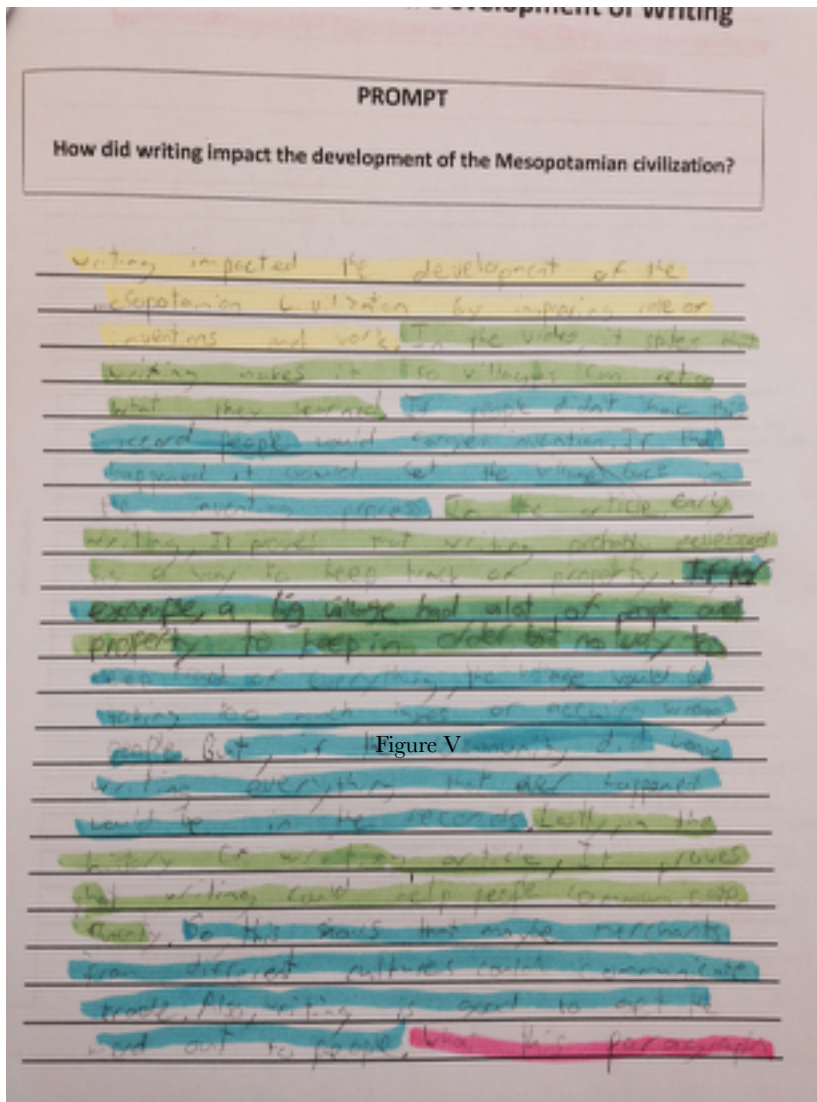 Development of Writing
PROMPT
How did writing impact the development of the Mesopotamian civilization?
writing impacted the development of the
mesopotamian civilization by improving
inventions and work. In the video, it states that
writing makes it so villagers can
what they learned. If people didn't have this
record people would invention. If that
happened it would set the village back in
inventing process. In the article, Early
writing, It proves that writing probably developed
as a way to keep track of property. If for
example, a big village had alot of people and
property to keep in order but no way to
keep track of everything, the village would be
taking too much taxes or accusing wrong
people. But, if the community did have
Figure V
writing everything that ever happened
would be in the records. Lastly, in the
history of writing article, It proves
that writing could help people communicate
So this shows that maybe merchants
from different cultures could communicate
trade. Also, writing is good to get the
word out to people. What this paragraph